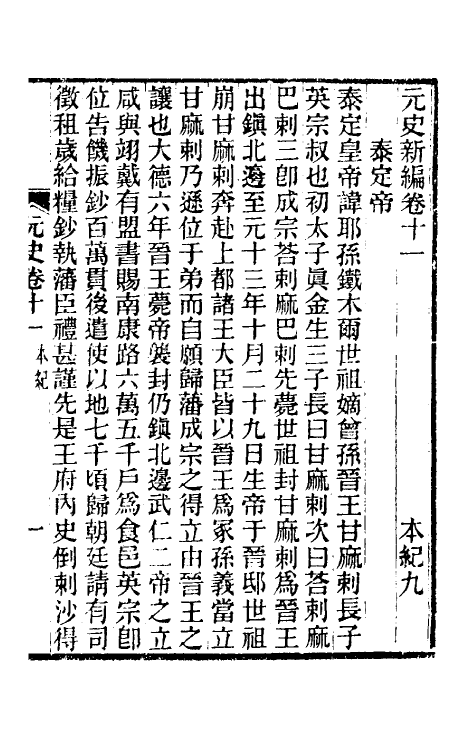 元史新編卷十一　本紀九
泰定帝
泰定皇帝諱耶孫鐵木爾世祖嫡曾孫晉王甘麻剌長子
英宗叔也初太子眞金生三子長曰甘麻剌次曰荅剌麻
巴剌三卽成宗荅剌麻巴剌先薨世祖封甘麻剌爲晉王
出鎭北邊至元十三年十月二十九日生帝于晉邸世祖
崩甘麻剌奔赴上都諸王大臣皆以晉王爲冢孫義當立
甘麻剌乃遜位于弟而自願歸藩成宗之得立由晉王之
讓也大德六年晉王薨帝襲封仍鎭北邊武仁二帝之立
咸與翊戴有盟書賜南康路六萬五千戶爲食邑英宗卽
位告饑振鈔百萬貫後遣使以地七千頃歸朝廷請有司
徵租歲給糧鈔執藩臣禮甚謹先是王府內史倒剌沙得
元史卷十一　本紀　一